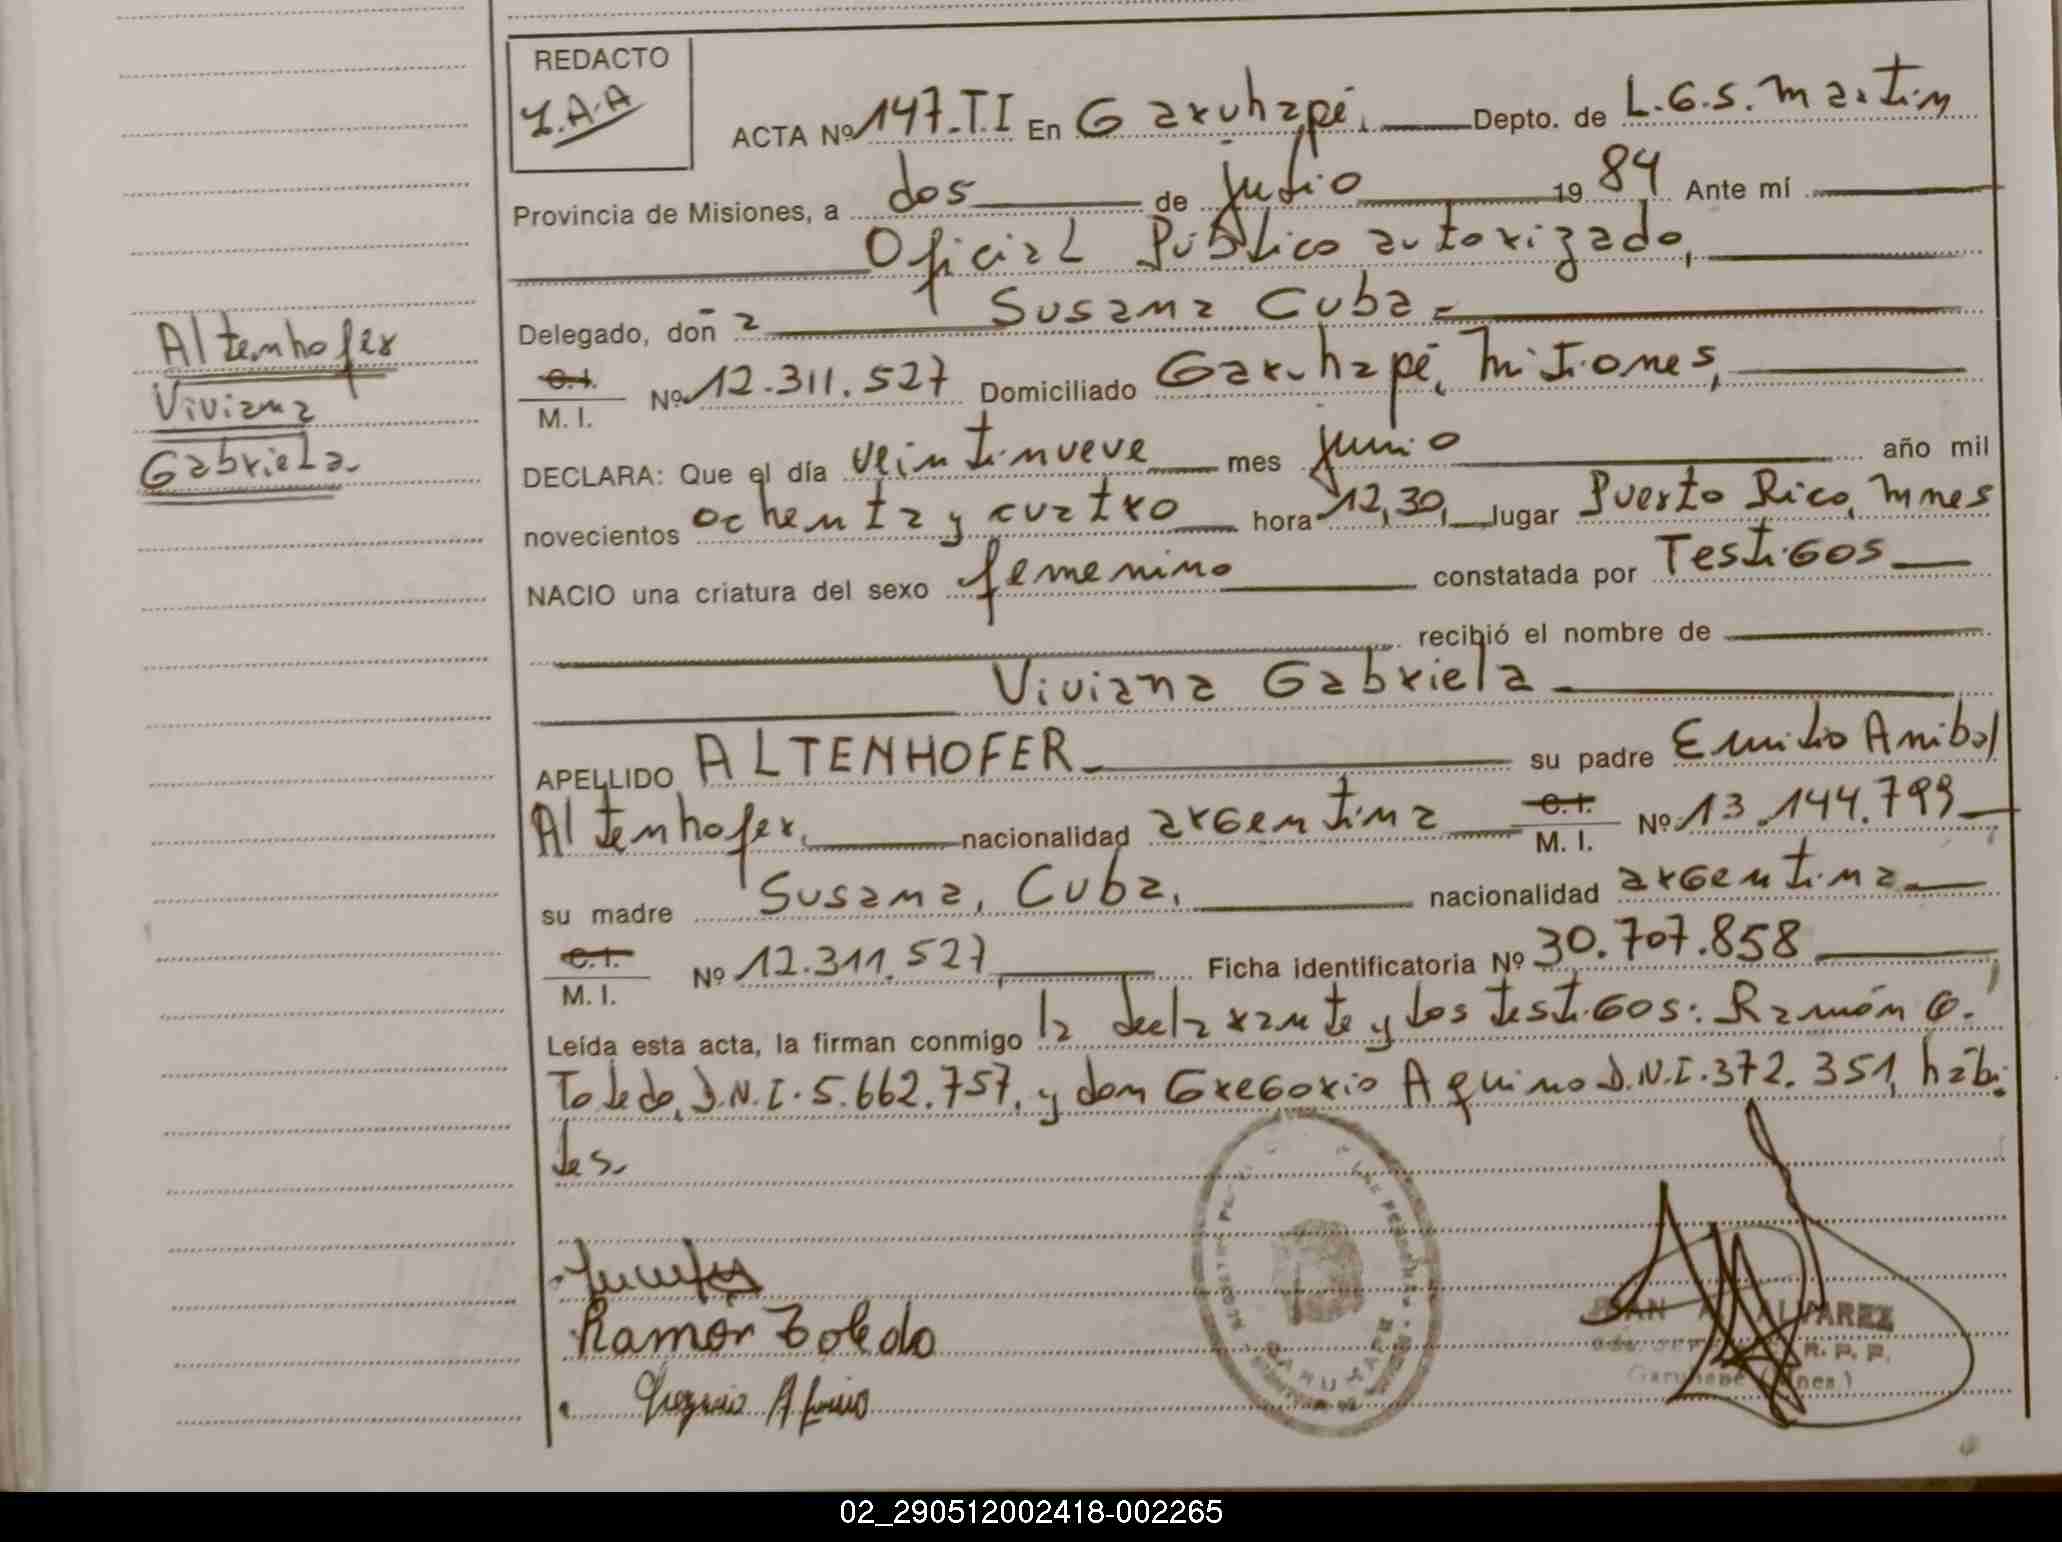 REDACTO
ACTA Nº 147-T.I En Garuhapé, Depto. de L.G.S. Martin
Provincia de Misiones, a dos de julio 1984 Ante mí
Oficial Público autorizado,
Delegado, doña Susana Cuba
C.I. M.I. Nº 12.311.527 Domiciliado Garuhapé, Misiones,
Altenhofer
Viviana
Gabriela
DECLARA: Que el día veintinueve mes junio año mil
novecientos ochenta y cuatro hora 12,30, lugar Puerto Rico, Mnes
NACIO una criatura del sexo femenino constatada por Testigos
recibió el nombre de
Viviana Gabriela
APELLIDO ALTENHOFER su padre Emilio Anibal
Altenhofer, nacionalidad argentina C.I. M.I. Nº 13.144.799
su madre Susana, Cuba, nacionalidad argentina
C.I. M.I. Nº 12.311.527, Ficha identificatoria Nº 30.707.858
Leída esta acta, la firman conmigo la declarante y los testigos: Ramón G.
Toledo, D.N.I. 5.662.757, y don Gregorio Aquino D.N.I. 372.351, hábi
les.
Ramón Toledo
Gregorio Aquino
GARUHAPE
JUAN A. ALVAREZ
R. P. P.
Garuhapé (Mnes.)
02_290512002418-002265